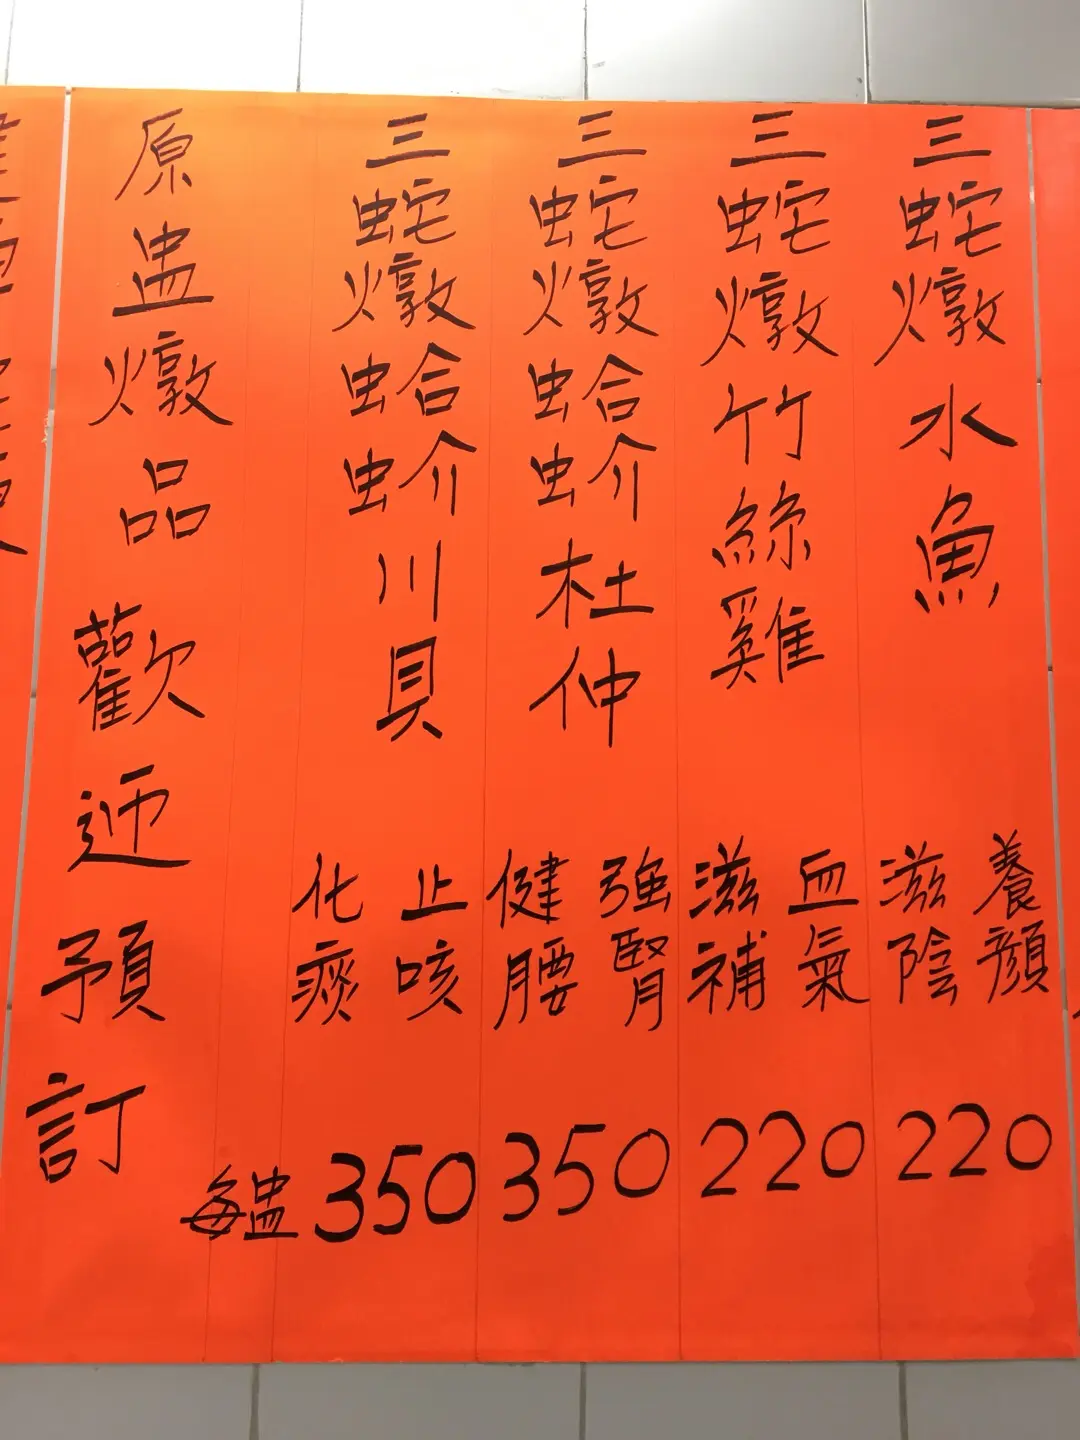 三蛇燉水魚
養顏
滋陰
220
三蛇燉竹絲雞
血氣
滋補
220
三蛇燉蛤蚧杜仲
強腎
健腰
350
三蛇燉蛤蚧川貝
止咳
化痰
每盅350
原盅燉品 歡迎預訂